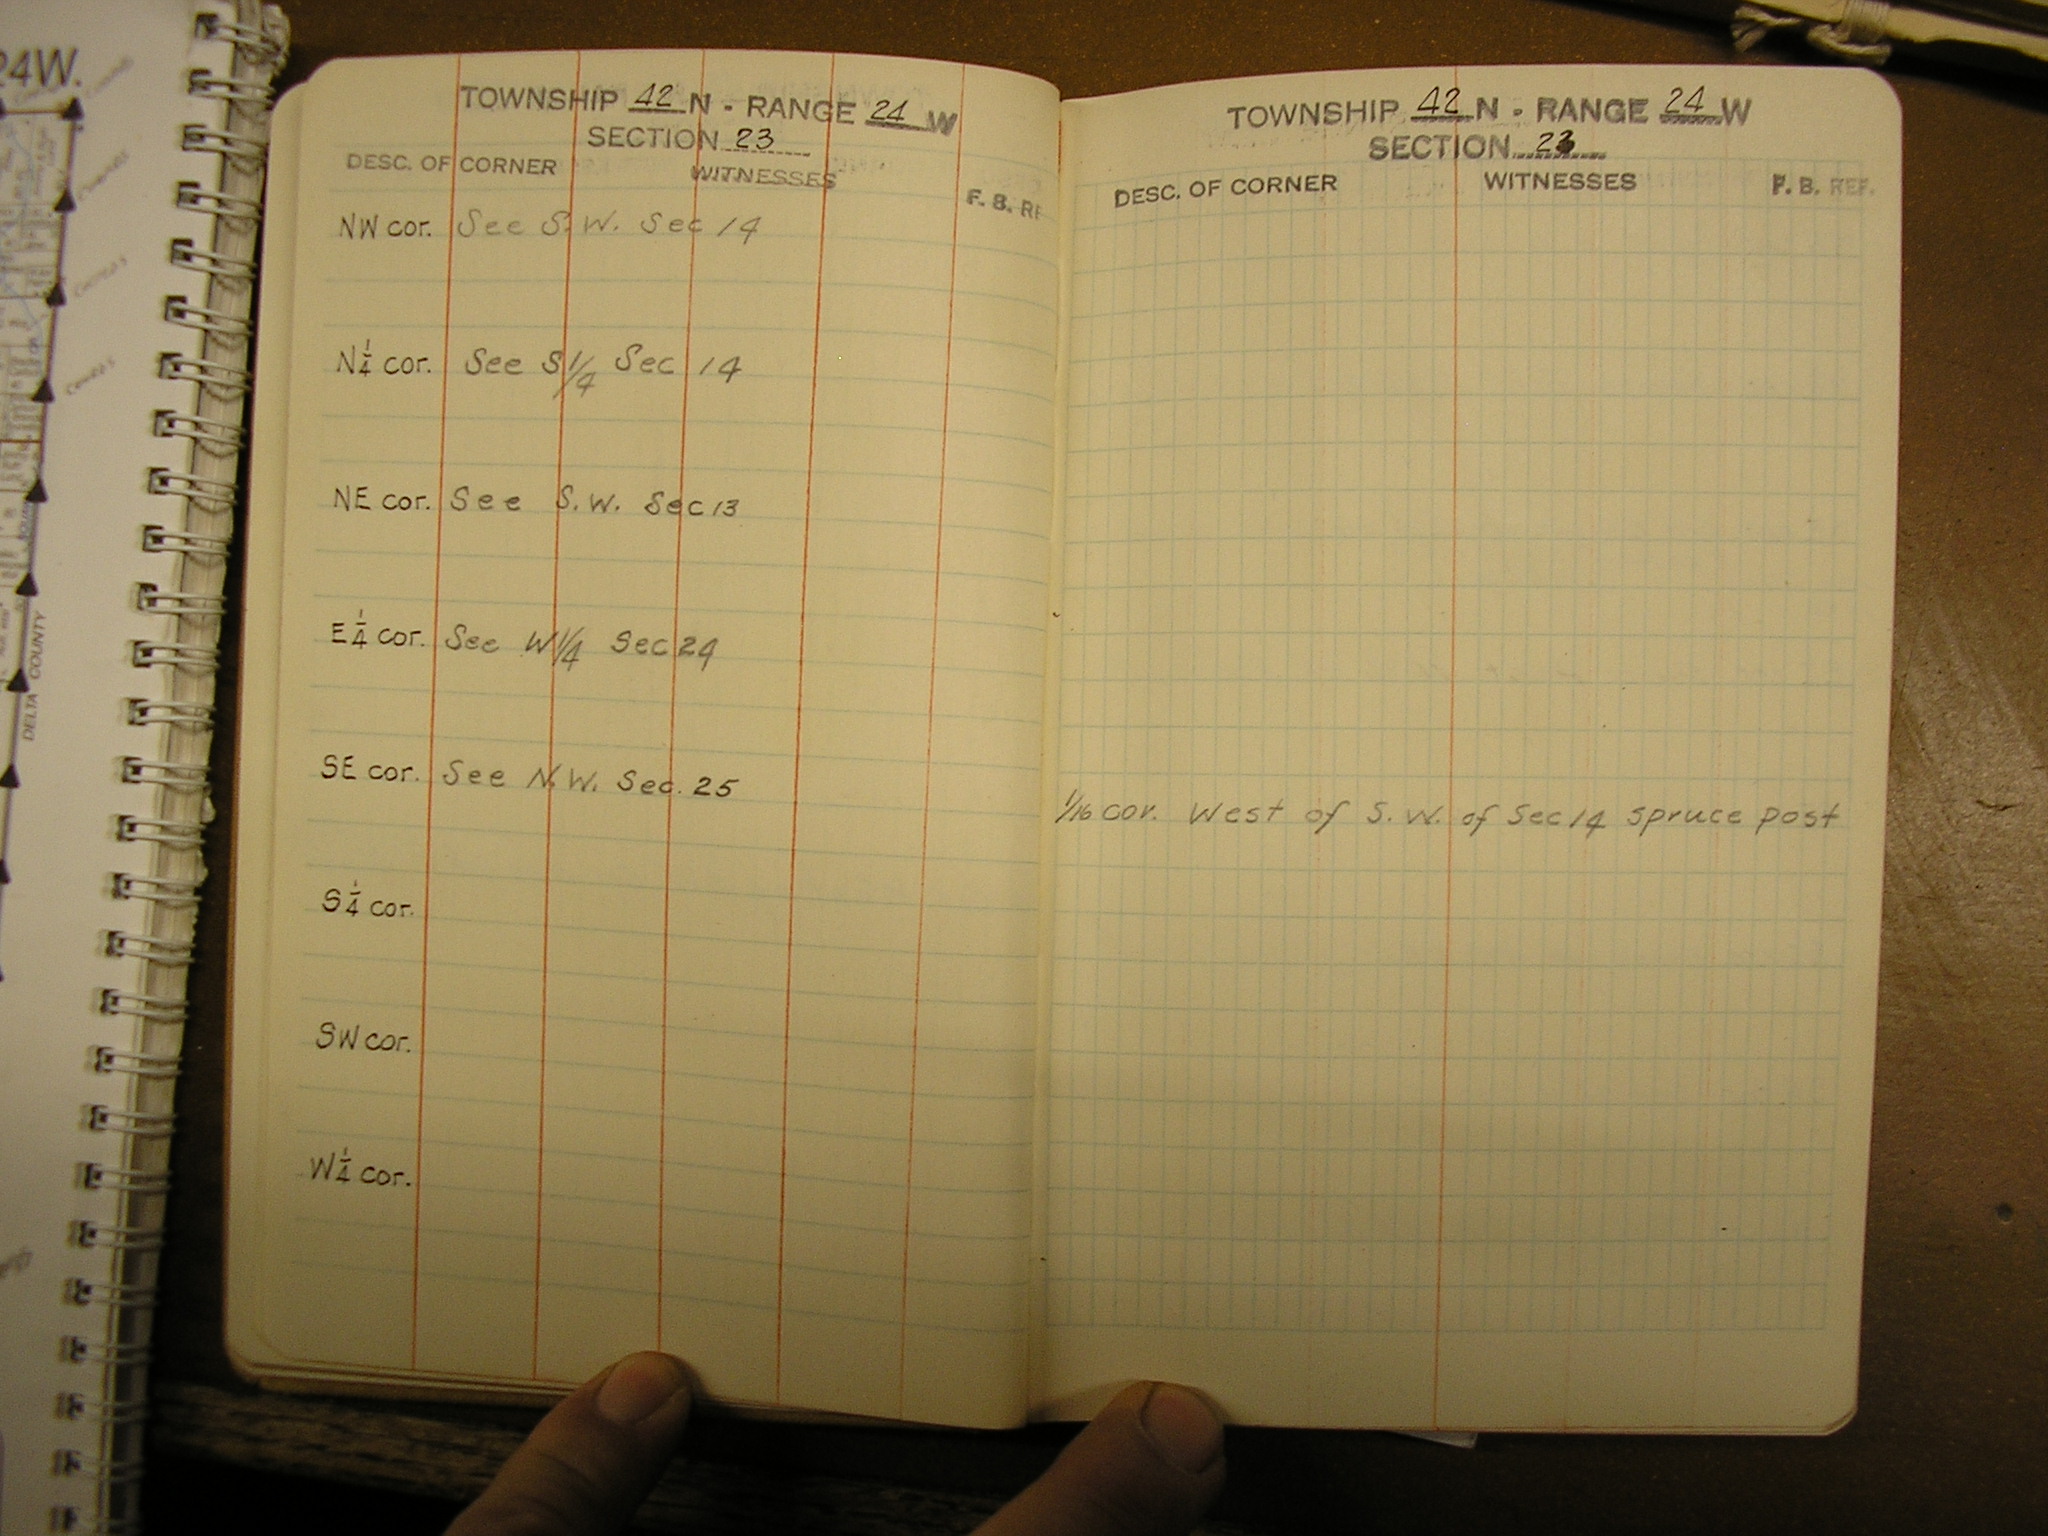 24W.
DELTA COUNTY
TOWNSHIP 42 N - RANGE 24 W
SECTION 23
DESC. OF CORNER WITNESSES F. B. RE
NW cor. See S.W. Sec 14
N 1/4 cor. See S 1/4 Sec 14
NE cor. See S.W. Sec 13
E 1/4 cor. See W 1/4 Sec 24
SE cor. See N.W. Sec. 25
S 1/4 cor.
SW cor.
W 1/4 cor.
TOWNSHIP 42 N - RANGE 24 W
SECTION 23
DESC. OF CORNER WITNESSES F. B. REF.
1/16 cor. West of S.W. of Sec 14 spruce post